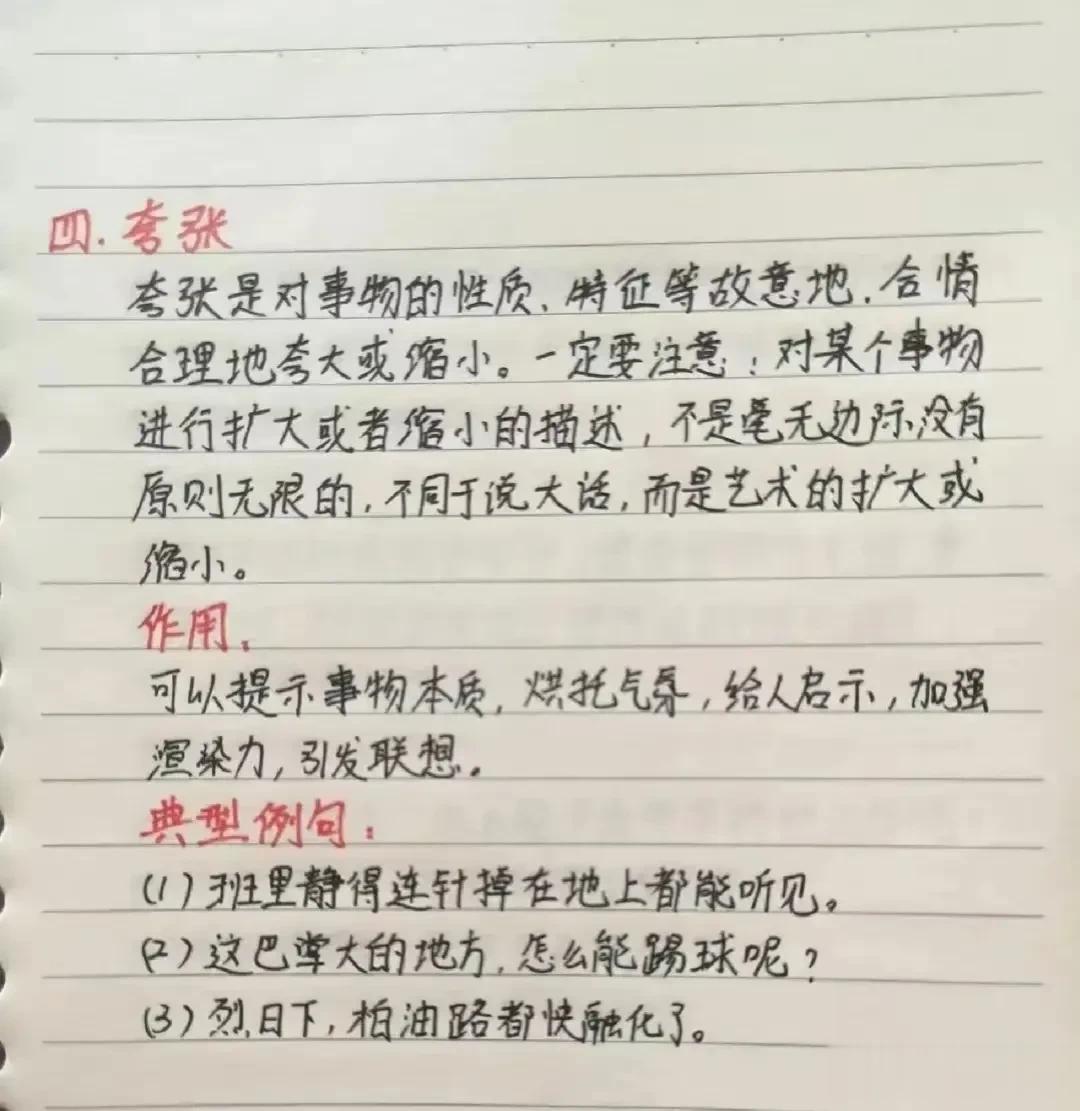 四.夸张
夸张是对事物的性质、特征等故意地.合情
合理地夸大或缩小。一定要注意:对某个事物
进行扩大或者缩小的描述,不是毫无边际没有
原则无限的,不同于说大话,而是艺术的扩大或
缩小。
作用、
可以提示事物本质,烘托气氛,给人启示,加强
渲染力,引发联想。
典型例句:
(1)班里静得连针掉在地上都能听见。
(2)这巴掌大的地方,怎么能踢球呢?
(3)烈日下,柏油路都快融化了。